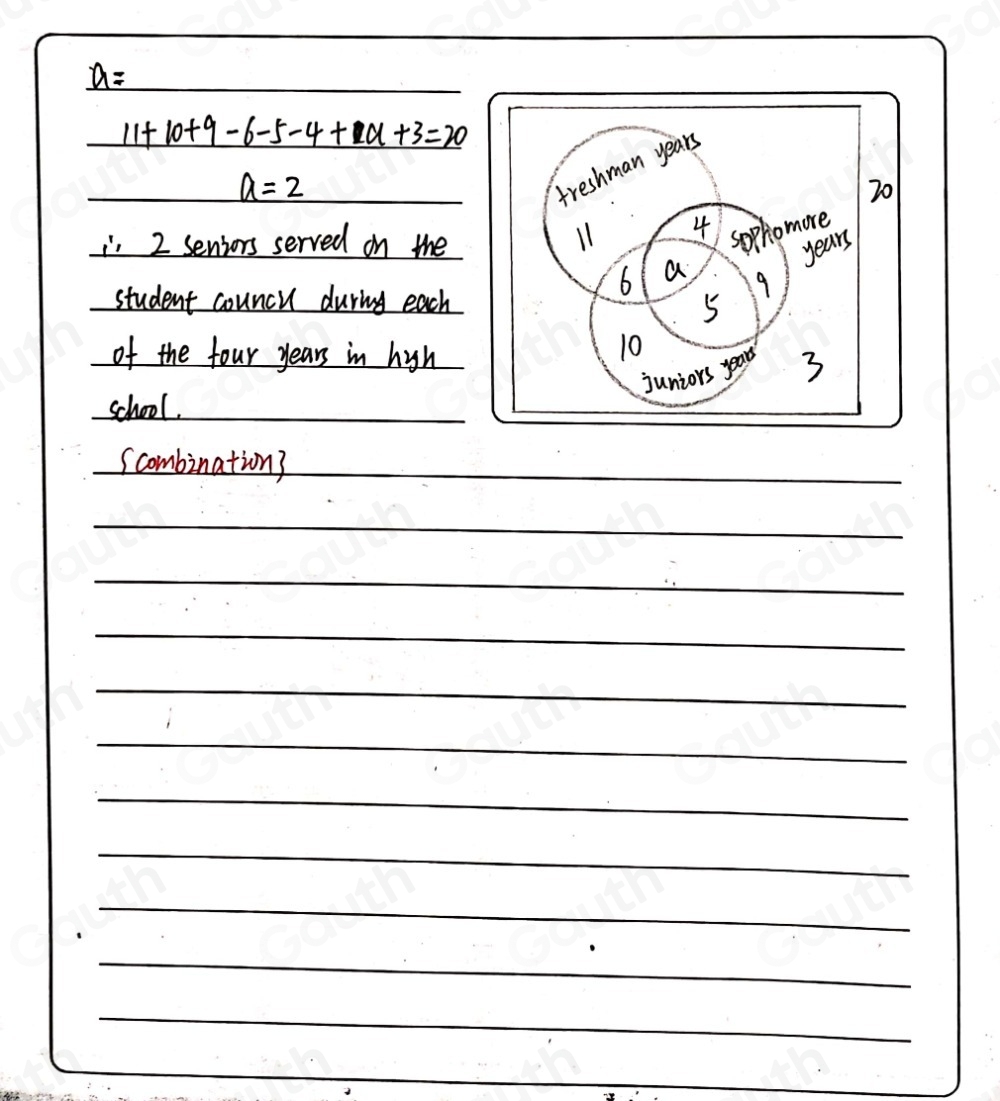 a=
11+10+9-6-5-4+a+3=20
a=2
∴ 2 seniors served on the
student council during each
of the four years in high
school.
{combination}
freshman years
11
4
sophomore
years
20
6
a
9
5
10
juniors years
3
Gauth